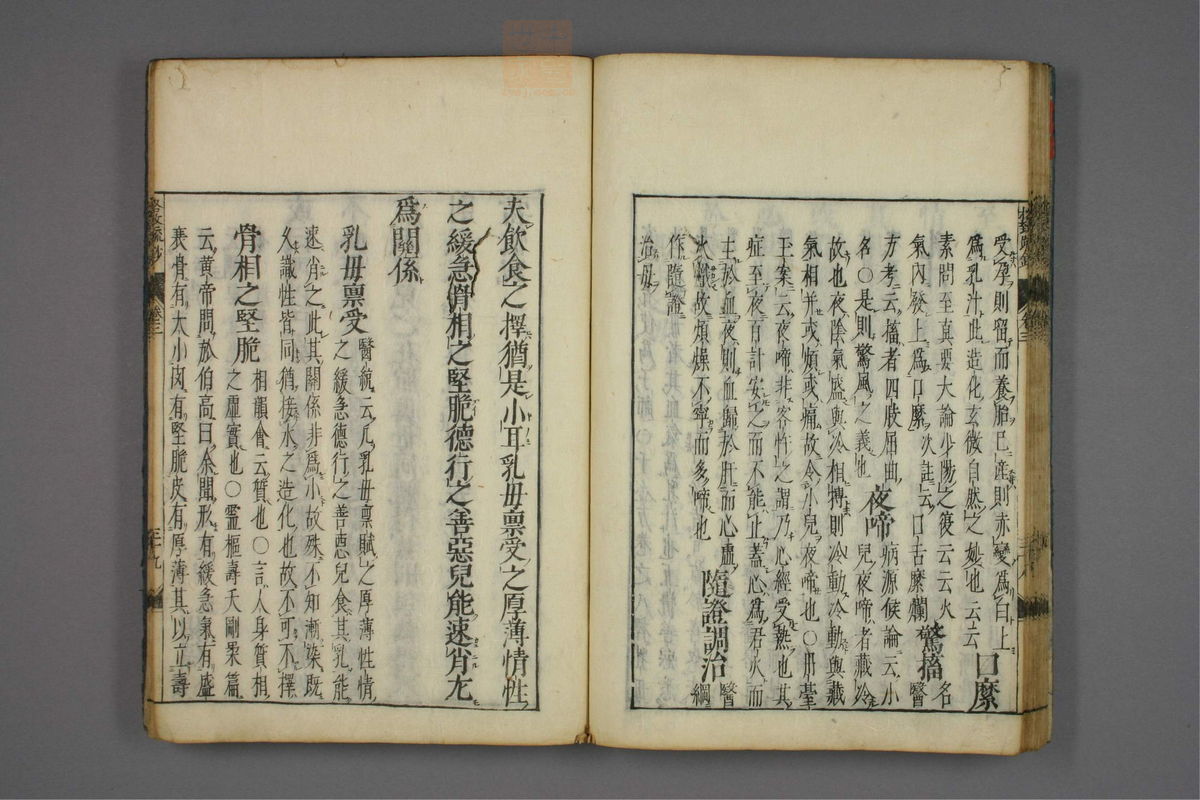 受孕則留而養胎已產則赤變爲白上
爲乳汁此造化玄微自然之妙也云云 口麋
素問至眞要大論少陽之復云云火
氣內發上爲口麋次註云口舌麋爛 驚搐 名醫
方考云搐者四肢屈曲
名〇是則驚風之義也 夜啼 病源候論云小兒夜啼者藏冷
故也夜陰氣盛與冷相搏則冷動冷動與藏
氣相并或煩或痛故令小兒夜啼也〇丹臺
玉案云夜啼非客忤之謂乃心經受熱也其
症至夜百計安之而不能止蓋心爲君火而
主於血夜則血歸於肝而心虛
火 故煩燥不寧而多啼也 隨證調治 醫綱
作隨證
治母
夫飲食之擇猶是小耳乳母禀受之厚薄情性
之緩急骨相之堅脆德行之善惡兒能速肖尤
爲關係
乳母禀受 醫統云凡乳母禀賦之厚薄性情
之緩急德行之善惡兒食其乳能
速肖之此其關係非爲小故殊不知漸染既
久識性皆同猶接木之造化也故不可不擇
骨相之堅脆 相韻會云質也〇言人身質相
之虛實也〇靈樞壽夭剛柔篇
云黃帝問於伯高曰余聞形有緩急氣有盛
衰骨有大小肉有堅脆皮有厚薄其以立壽